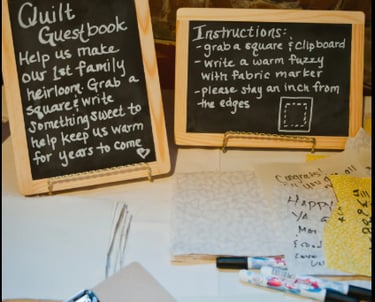 Quilt
Guestbook
Help us make
our 1st family
heirloom. Grab a
square & write
something sweet to
help keep us warm
for years to come
Instructions:
- grab a square & clipboard
- write a warm fuzzy
with fabric marker
- please stay an inch from
the edges
Congrats!
Happy